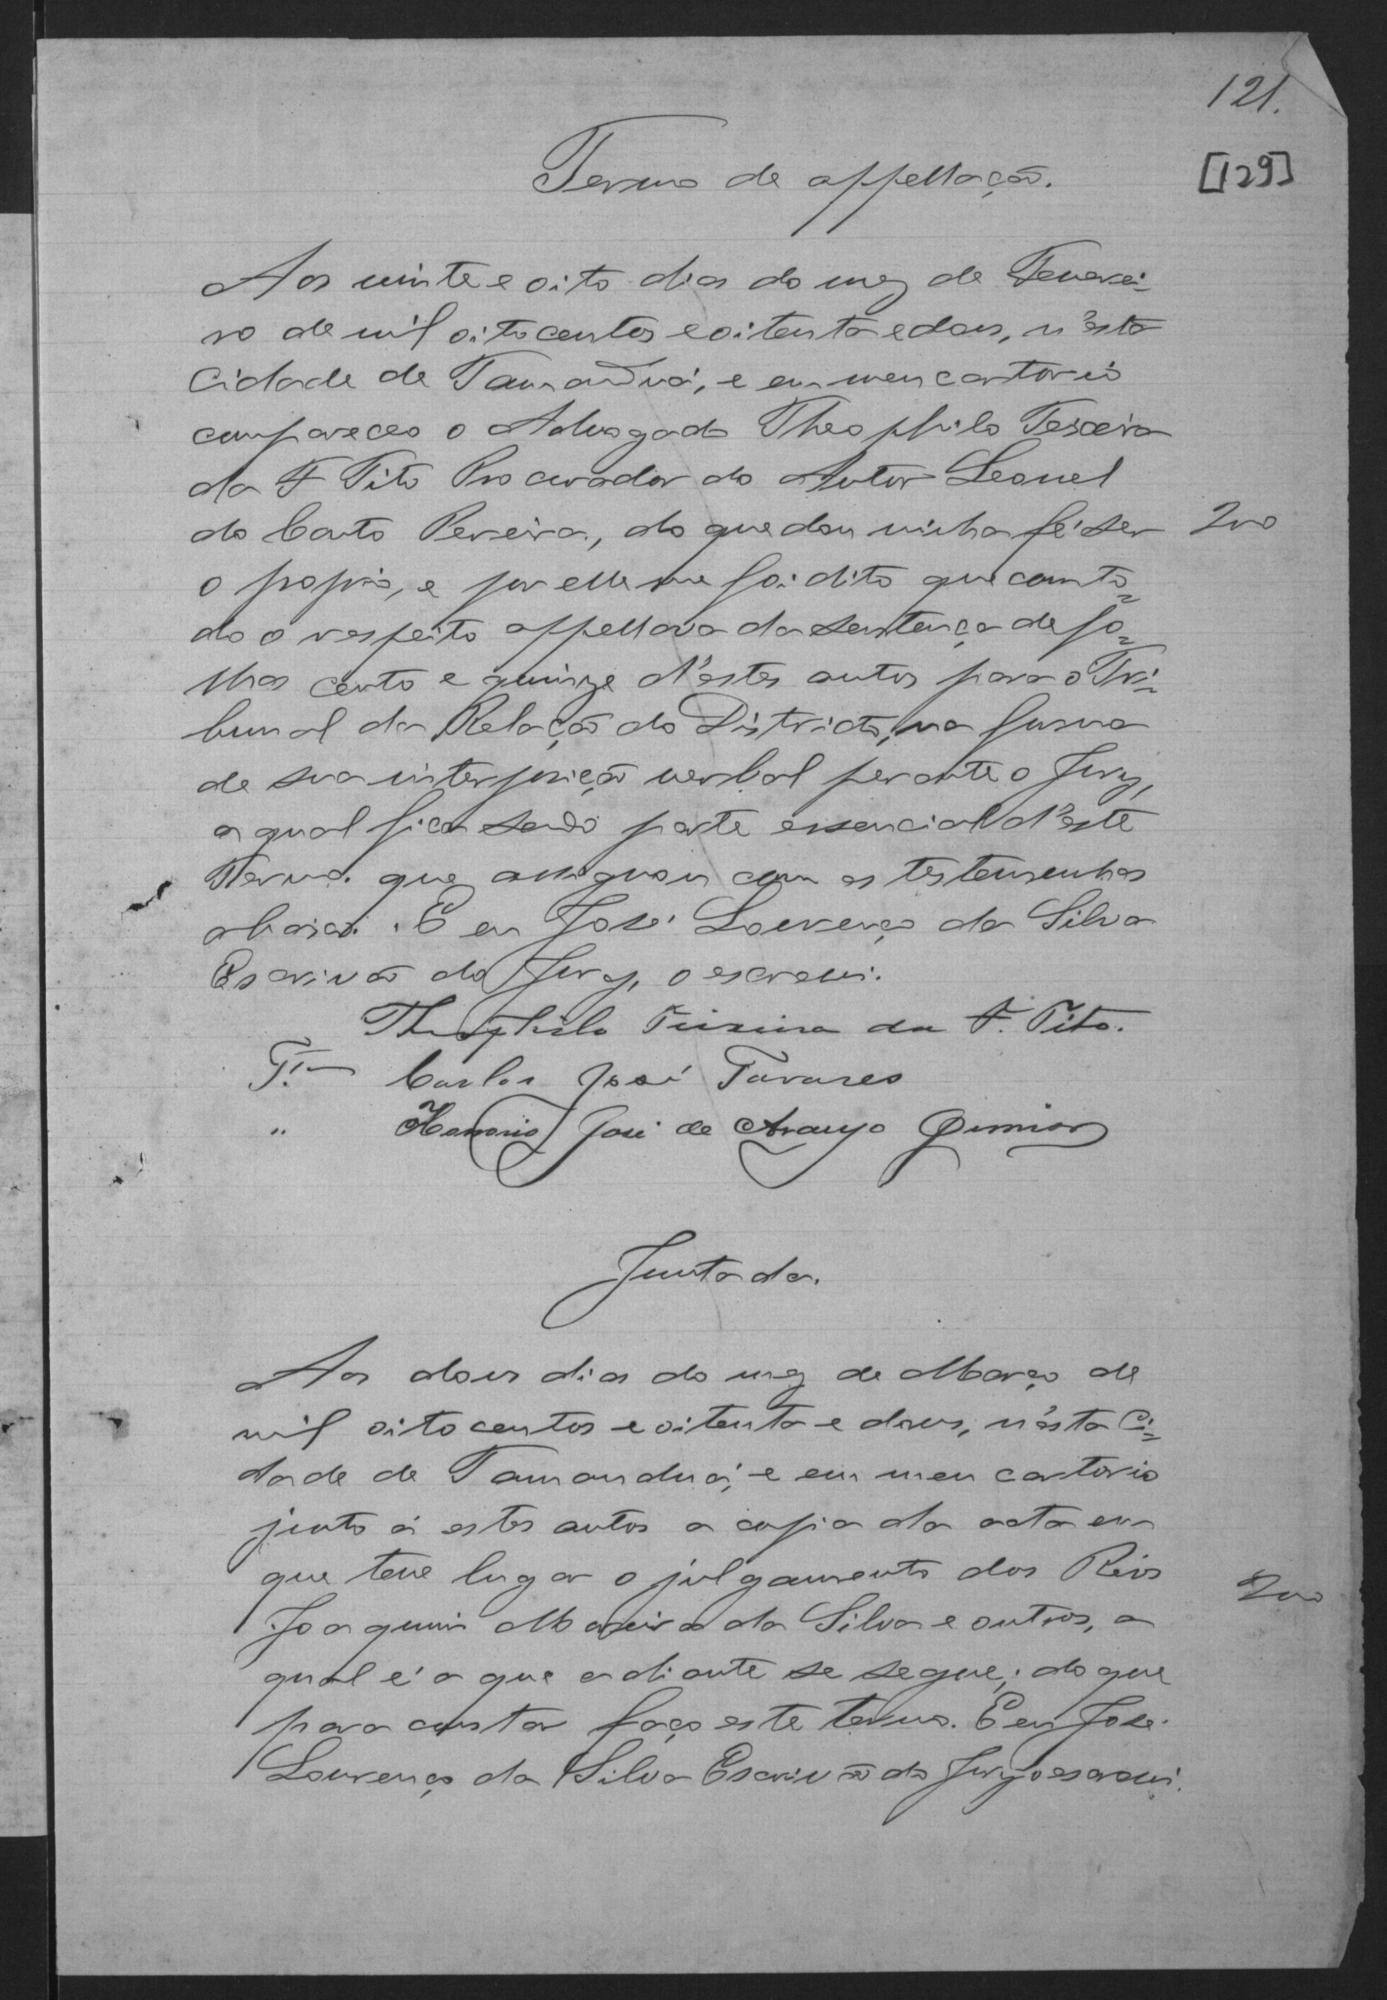 121.
[129]
Termo de appellação.
Aos vinte e oito dias do mez de Feverei-
ro de mil oitocentos e oitenta e dous, n'esta
Cidade de Tamanduá, e em meu cartorio
compareceo o Advogado Theophilo Teixeira
da F Tito Procurador do Autor Leonel
do Couto Pereira, do que dou minha fé ser 200
o propio, e por elle me foi dito que com to=
do o respeito appellava da sentença de fo=
lhas cento e quinze d'estes autos para o Tri=
bunal da Relação do Districto, na forma
de sua interposição verbal perante o Jury,
a qual fica sendo parte essencial d'este
Termo. que assignou com as testemunhas
abaixo. E eu José Lourenço da Silva
Escrivão do Jury, o escrevi.
Theophilo Teixeira da F. Tito.
T. Carlos José Tavares
" Honorio José de Araujo Junior
Juntada.
Aos dous dias do mez de Março de
mil oitocentos e oitenta e dous, n'esta Ci=
dade de Tamanduá, e em meu cartorio
junto á estes autos a copia da acta em
que teve lugar o julgamento dos Réos 200
Joaquim Moreira da Silva e outros, a
qual é a que adiante se segue; do que
para constar faço este termo. E eu José
Lourenço da Silva Escrivão do Jury o escrevi.